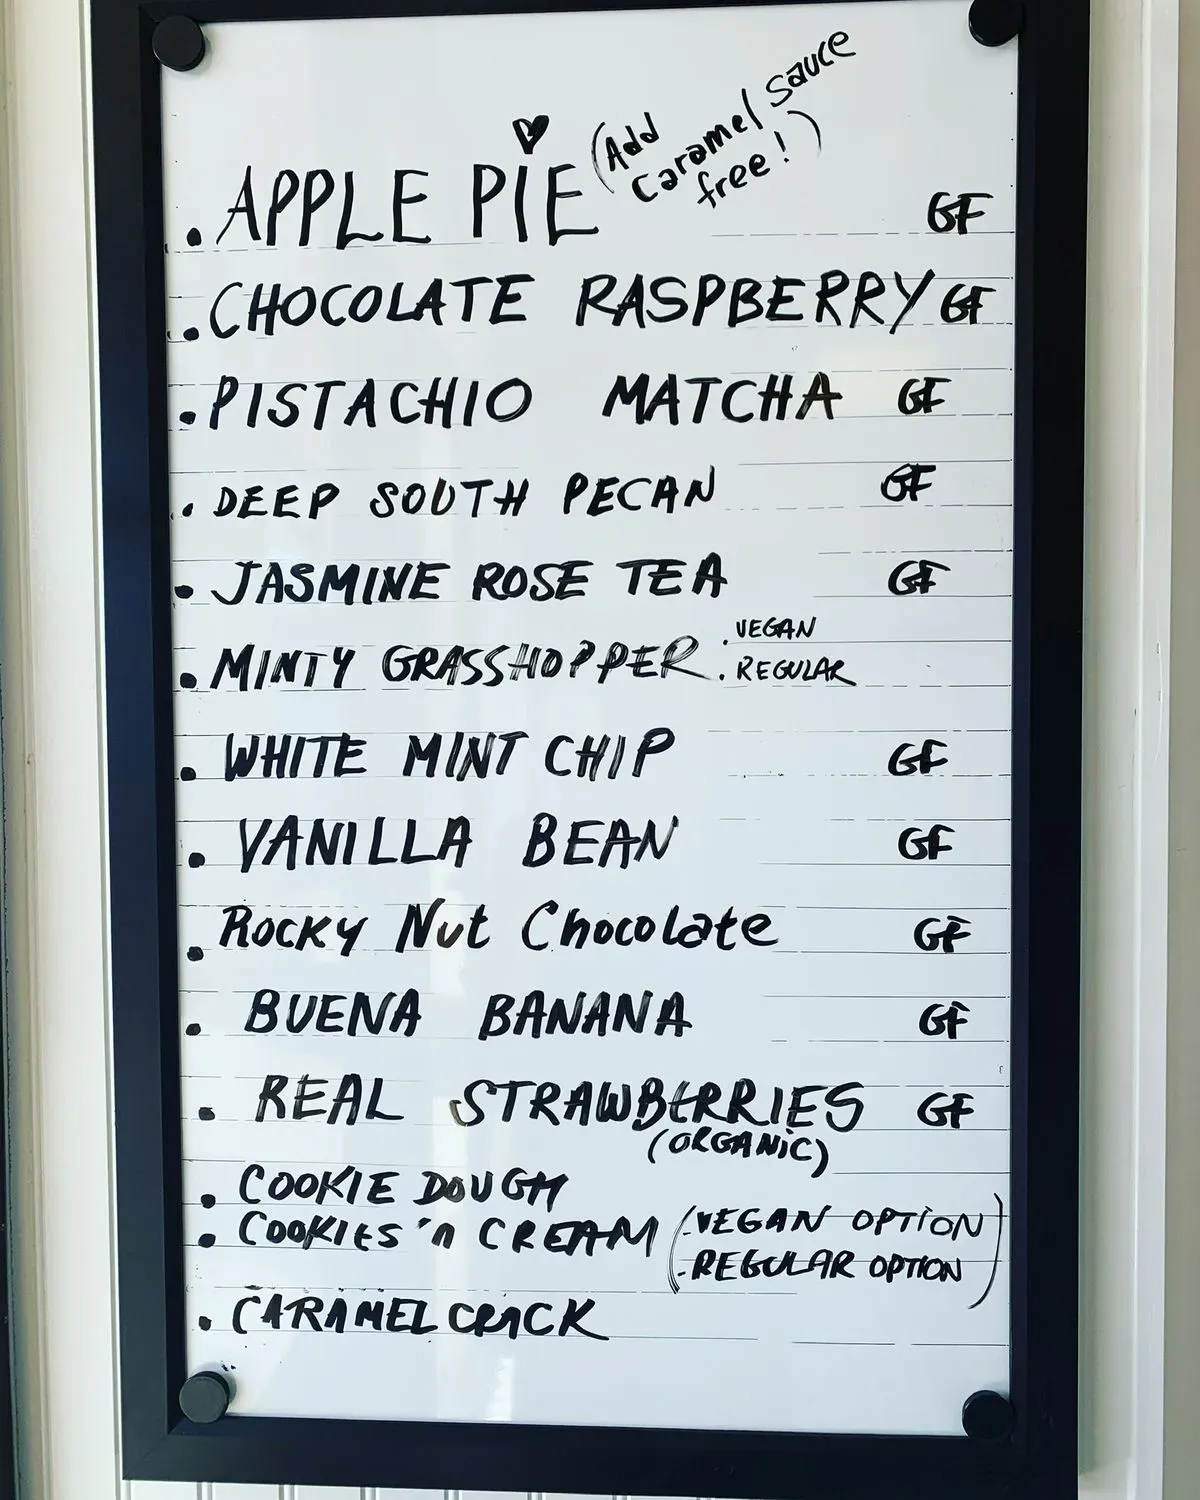 • APPLE PIE (Add Caramel sauce free!) GF
• CHOCOLATE RASPBERRY GF
• PISTACHIO MATCHA GF
• DEEP SOUTH PECAN GF
• JASMINE ROSE TEA GF
• MINTY GRASSHOPPER • VEGAN
• REGULAR
• WHITE MINT CHIP GF
• VANILLA BEAN GF
• ROCKY Nut Chocolate GF
• BUENA BANANA GF
• REAL STRAWBERRIES GF
(ORGANIC)
• COOKIE DOUGH
• COOKIES 'n CREAM (-VEGAN OPTION
-REGULAR OPTION)
• CARAMEL CRACK